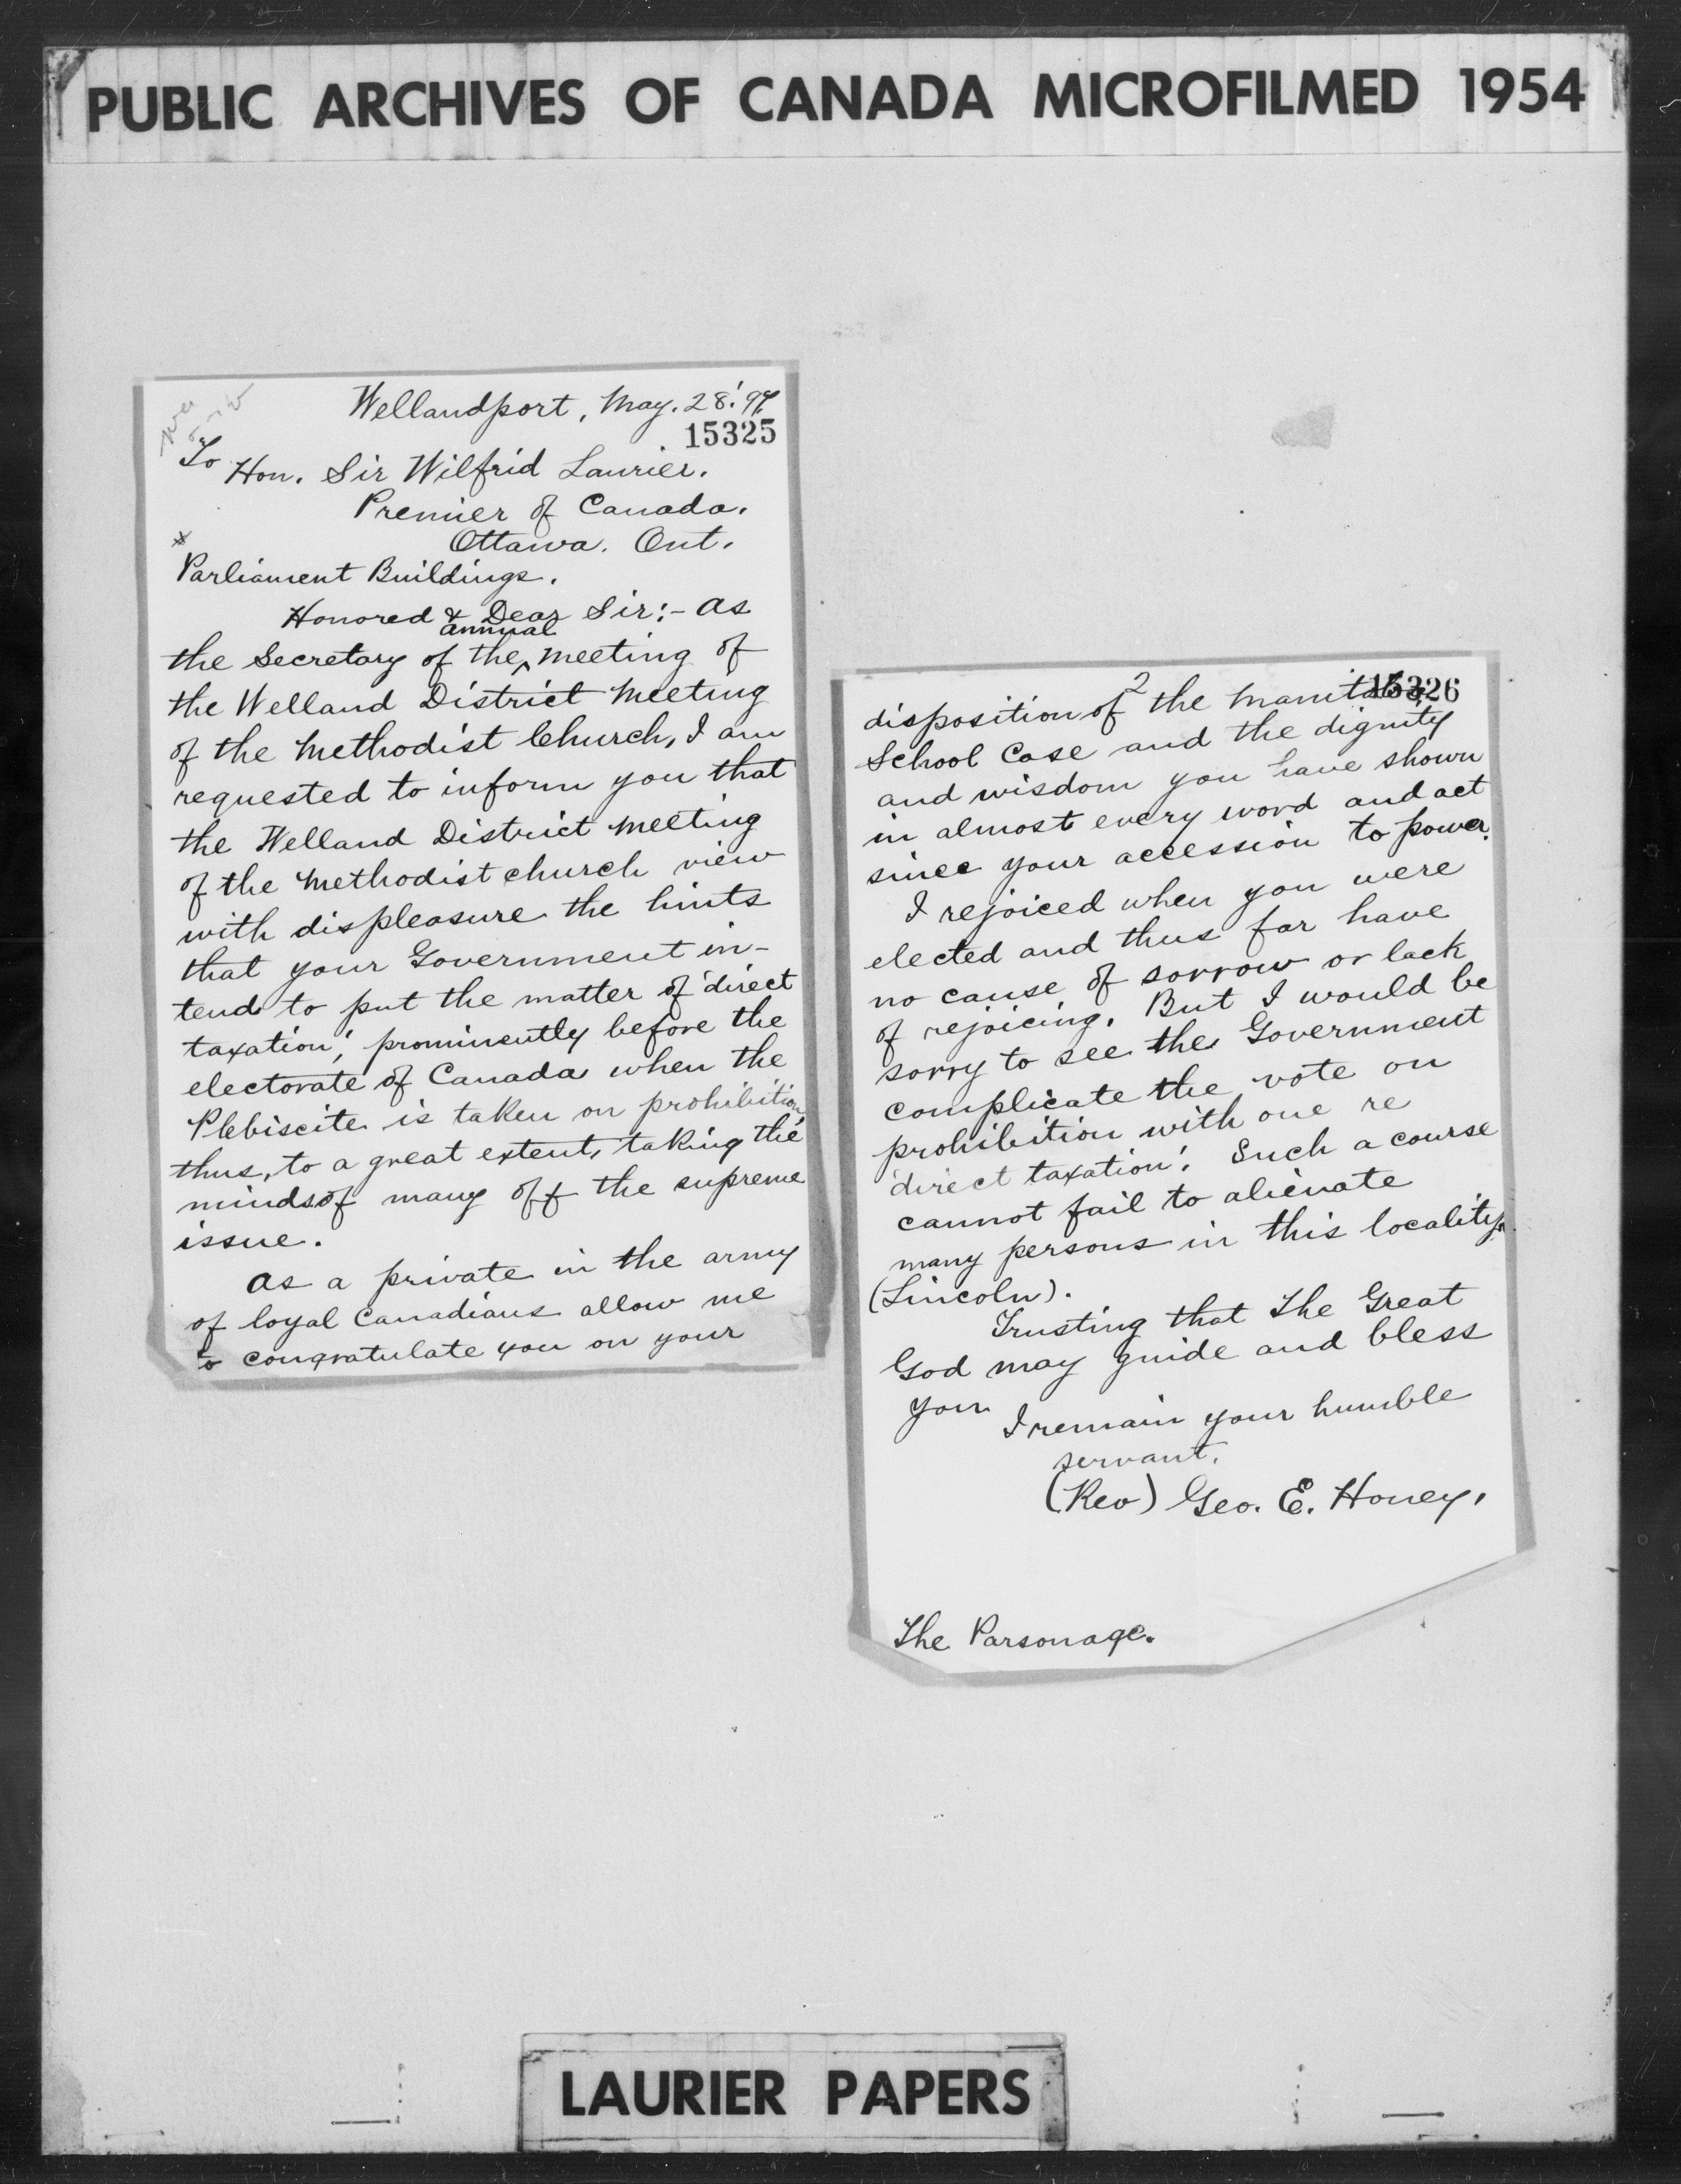 PUBLIC ARCHIVES OF CANADA MICROFILMED 1954
Wellandport, May. 28. '97.
15325
To Hon. Sir Wilfrid Laurier.
Premier of Canada.
Ottawa. Ont.
x
Parliament Buildings.
Honored & Dear Sir:- As
annual
the Secretary of the ^ meeting of
the Welland District Meeting
of the Methodist Church, I am
requested to inform you that
the Welland District Meeting
of the Methodist church view
with displeasure the hints
that your Government in-
tend to put the matter of 'direct
taxation', prominently before the
electorate of Canada when the
Plebiscite is taken on prohibition,
thus, to a great extent, taking the
minds of many off the supreme
issue.
As a private in the army
of loyal Canadians allow me
to congratulate you on your
2
15326
disposition of the Manitoba
School Case and the dignity
and wisdom you have shown
in almost every word and act
since your accession to power.
I rejoiced when you were
elected and thus far have
no cause of sorrow or lack
of rejoicing. But I would be
sorry to see the Government
complicate the vote on
prohibition with one re
'direct taxation'. Such a course
cannot fail to alienate
many persons in this locality.
(Lincoln).
Trusting that The Great
God may guide and bless
you
I remain your humble
servant.
(Rev) Geo. E. Honey.
The Parsonage.
LAURIER PAPERS